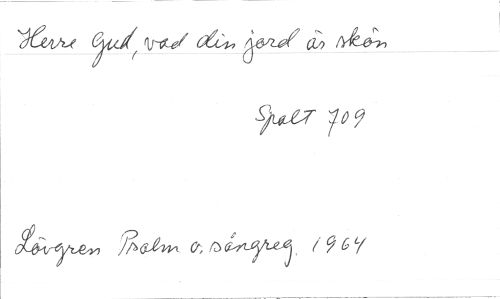 Herre Gud, vad din jord är skön
Spalt 709
Lövgren Psalm o. sångreg. 1964